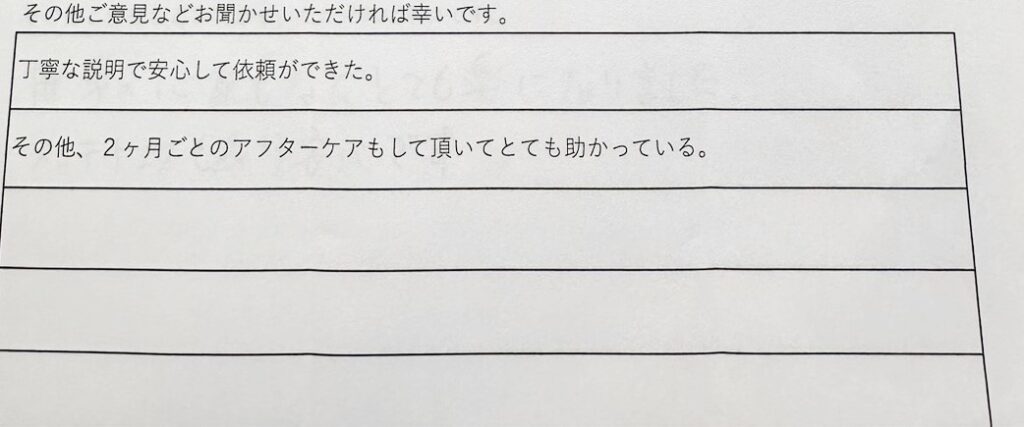 その他ご意見などお聞かせいただければ幸いです。
丁寧な説明で安心して依頼ができた。
その他、２ヶ月ごとのアフターケアもして頂いてとても助かっている。